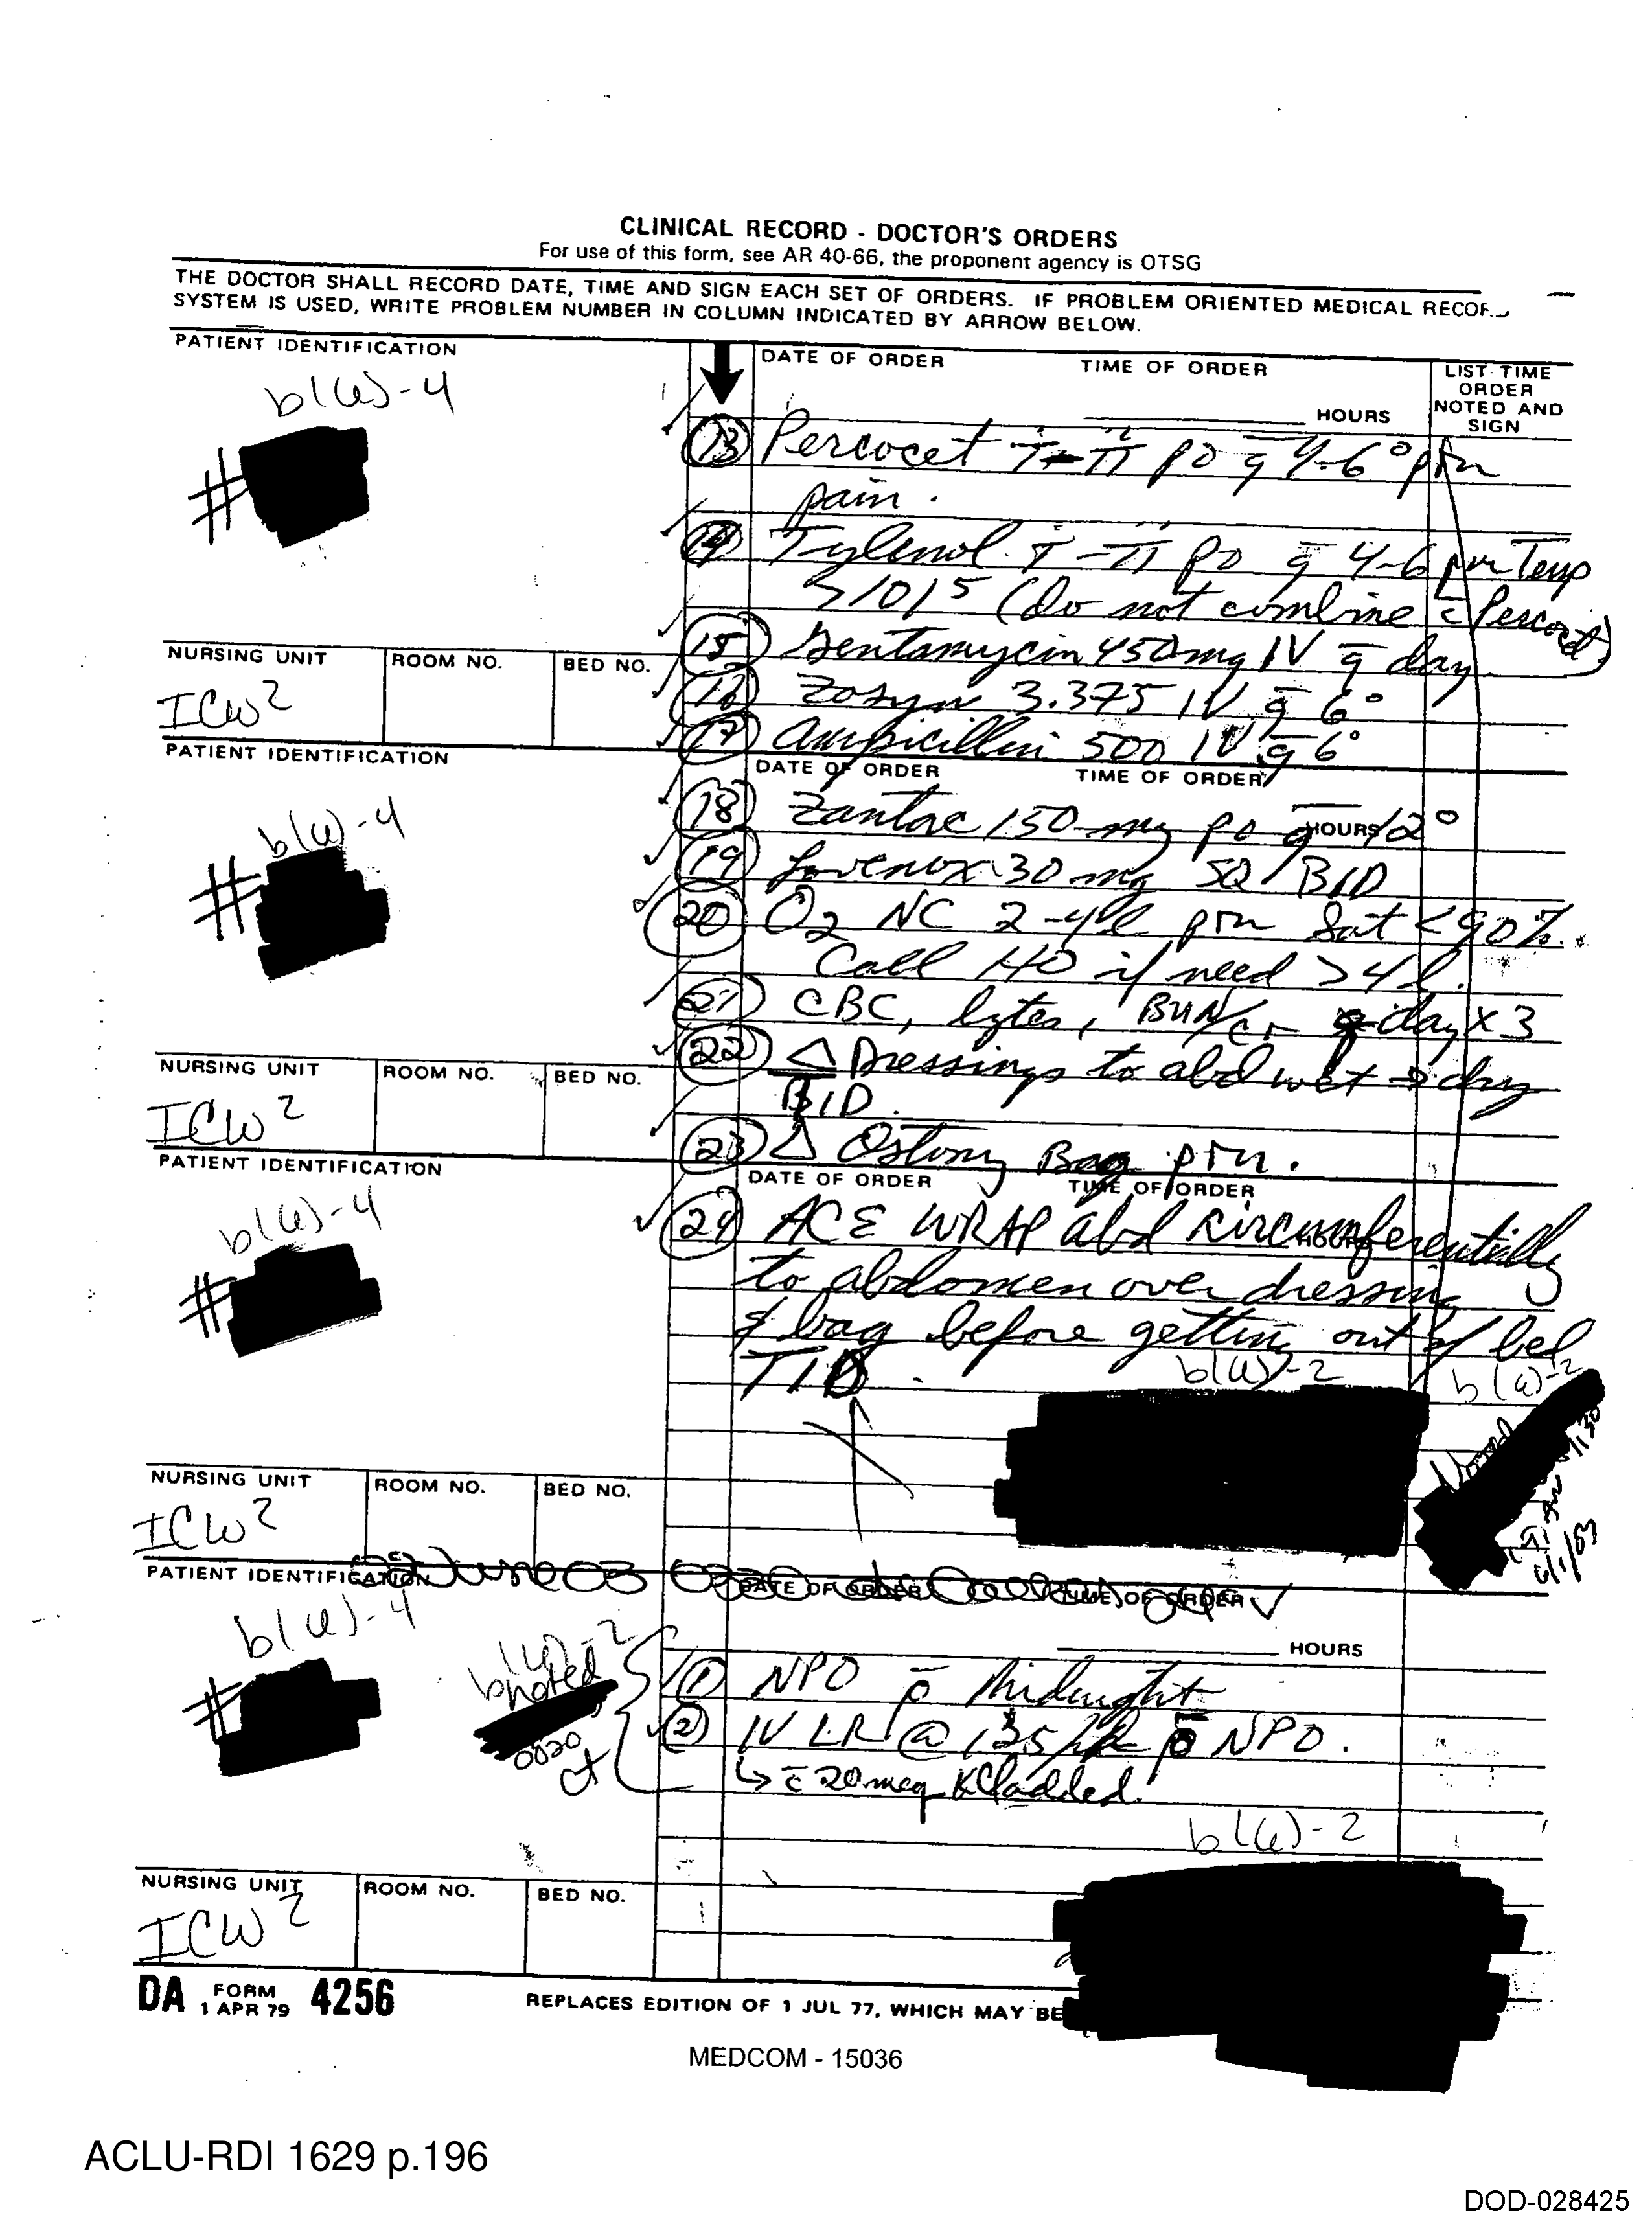 CLINICAL RECORD - DOCTOR'S ORDERS
For use of this form, see AR 40-66, the proponent agency is OTSG
THE DOCTOR SHALL RECORD DATE, TIME AND SIGN EACH SET OF ORDERS. IF PROBLEM ORIENTED MEDICAL RECOR
SYSTEM IS USED, WRITE PROBLEM NUMBER IN COLUMN INDICATED BY ARROW BELOW.
PATIENT IDENTIFICATION
DATE OF ORDER TIME OF ORDER
HOURS
LIST TIME
ORDER
NOTED AND
SIGN
b(6)-4
#
(13) Percocet i-ii po q 4-6° prn
pain.
(14) Tylenol i-ii po q 4-6 prn Temp
>101⁵ (do not combine c̄ Percocet)
(15) Gentamycin 450mg IV q day
(16) Zosyn 3.375 IV q 6°
(17) Ampicillin 500 IV q 6°
NURSING UNIT ROOM NO. BED NO.
ICW2
PATIENT IDENTIFICATION
DATE OF ORDER TIME OF ORDER
HOURS
b(6)-4
#
(18) Zantac 150 mg po q 12°
(19) Lovenox 30 mg SQ BID
(20) O2 NC 2-4 l prn Sat <90%.
Call HO if need >4 l.
(21) CBC, lytes, BUN/cr q day x 3
(22) Δ Dressings to abd wet → dry
BID.
(23) Δ Ostomy Bag prn.
NURSING UNIT ROOM NO. BED NO.
ICW2
PATIENT IDENTIFICATION
DATE OF ORDER TIME OF ORDER
HOURS
b(6)-4
#
(24) ACE WRAP abd circumferentially
to abdomen over dressing
& bag before getting out of bed
TID.
b(6)-2
b(6)-2
Noted
1130
6/1/03
NURSING UNIT ROOM NO. BED NO.
ICW2
PATIENT IDENTIFICATION
DATE OF ORDER TIME OF ORDER
02 June 03
HOURS
b(6)-4
#
b(6)-2
noted
0020
(1) NPO p̄ Midnight
(2) IV LR @ 135/hr p̄ NPO.
↳ c̄ 20 meq KCl added.
b(6)-2
NURSING UNIT ROOM NO. BED NO.
ICW2
DA FORM 1 APR 79 4256
REPLACES EDITION OF 1 JUL 77, WHICH MAY BE
MEDCOM - 15036
ACLU-RDI 1629 p.196
DOD-028425